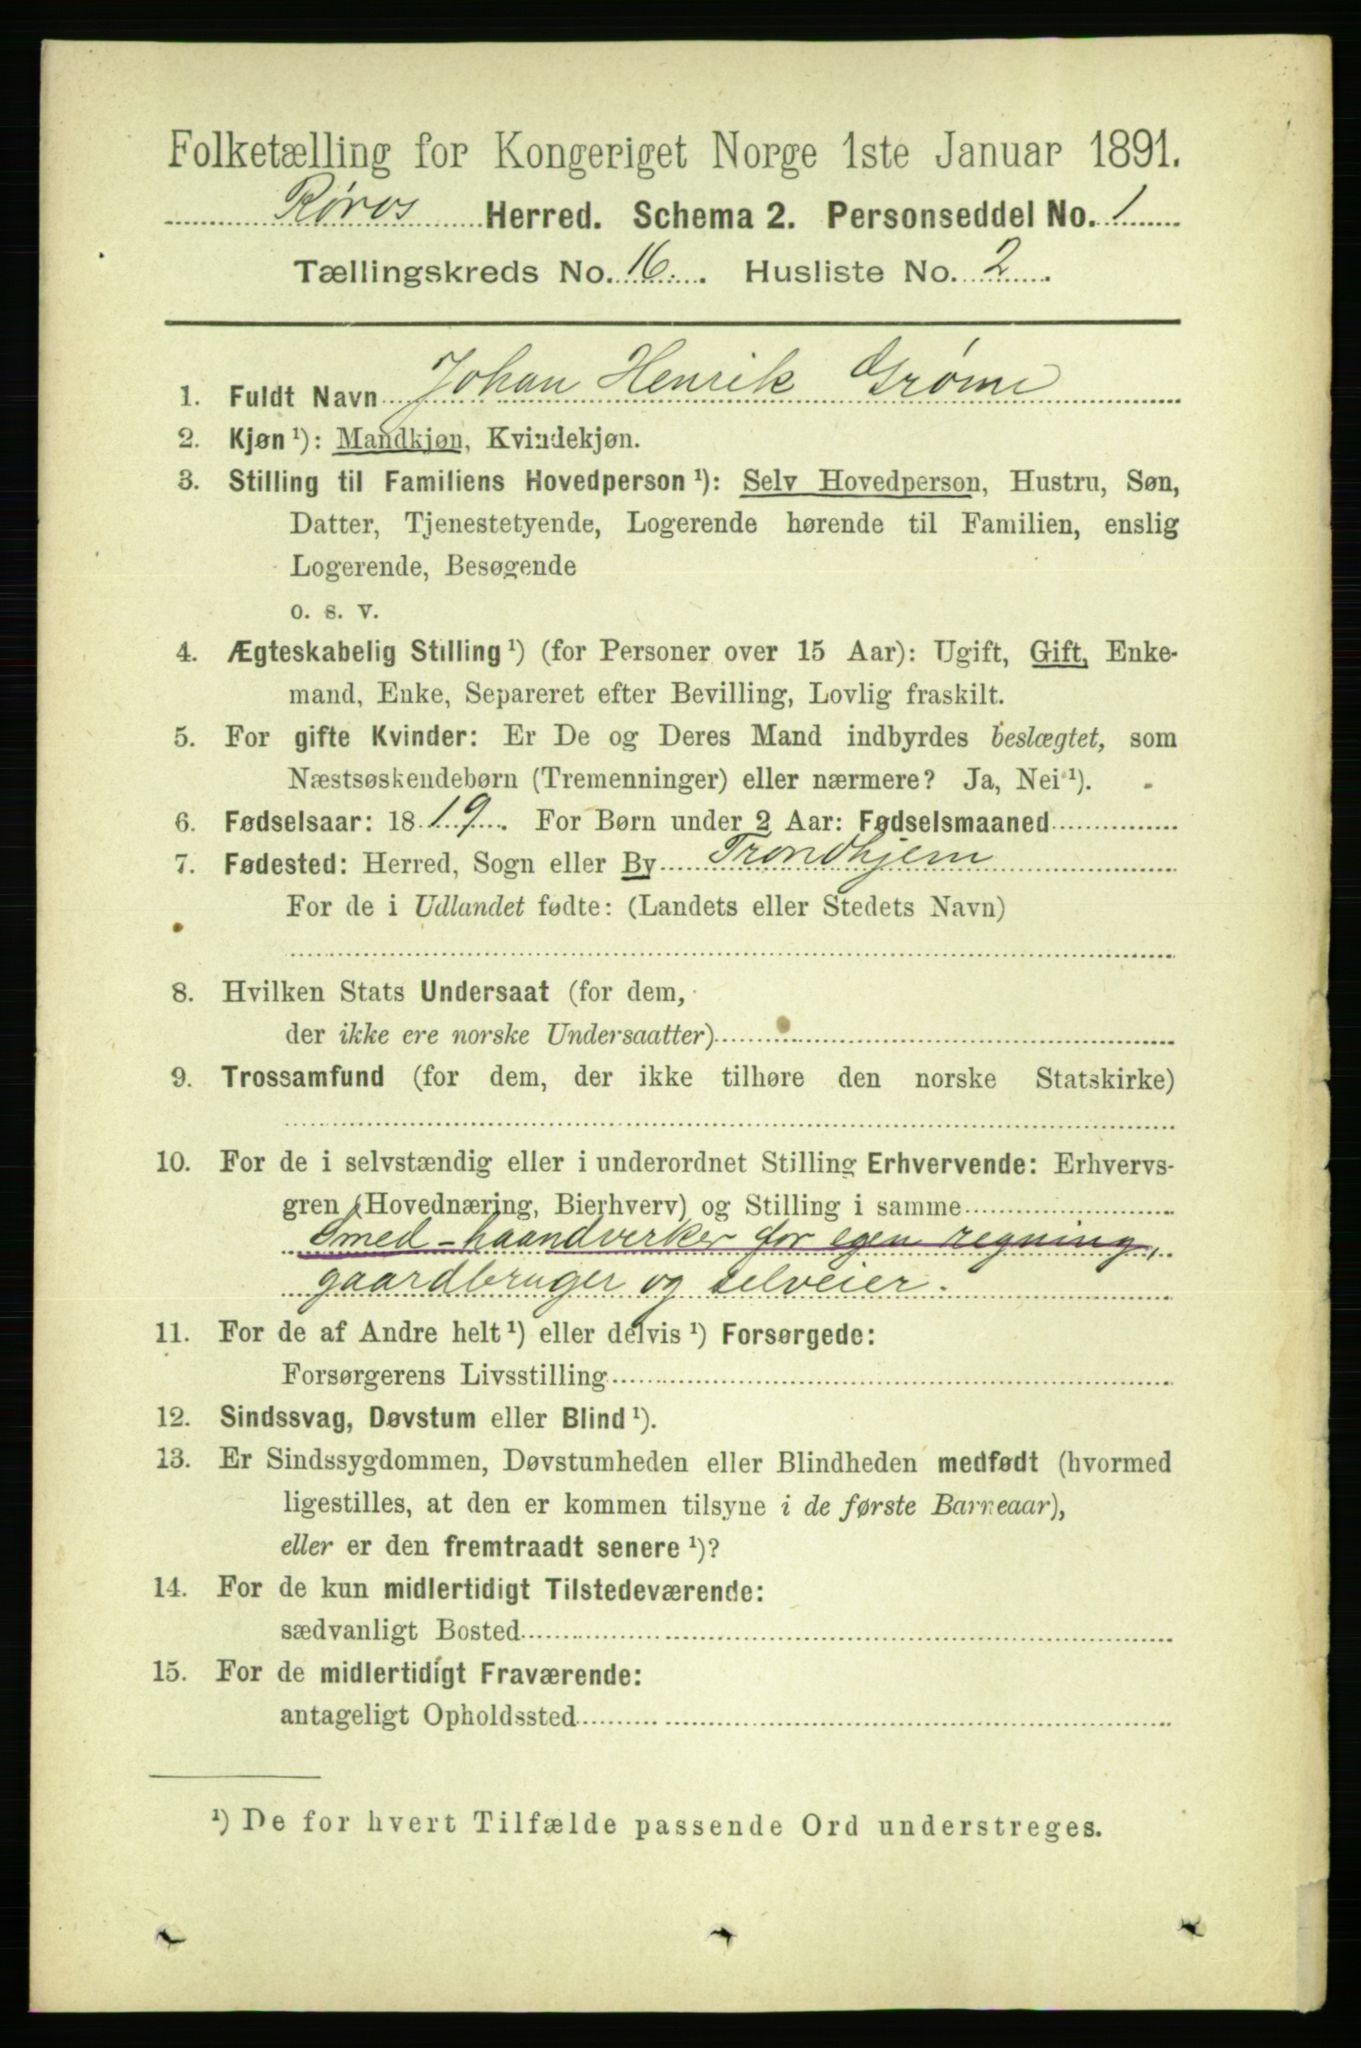 Folketælling for Kongeriget Norge 1ste Januar 1891.
Røros Herred. Schema 2. Personseddel No. 1
Tællingskreds No. 16. Husliste No. 2
1. Fuldt Navn Johan Henrik Grøme
2. Kjøn ¹): Mandkjøn, Kvindekjøn.
3. Stilling til Familiens Hovedperson ¹): Selv Hovedperson, Hustru, Søn,
Datter, Tjenestetyende, Logerende hørende til Familien, enslig
Logerende, Besøgende
o. s. v.
4. Ægteskabelig Stilling ¹) (for Personer over 15 Aar): Ugift, Gift, Enke-
mand, Enke, Separeret efter Bevilling, Lovlig fraskilt.
5. For gifte Kvinder: Er De og Deres Mand indbyrdes beslægtet, som
Næstsøskendebørn (Tremenninger) eller nærmere? Ja, Nei ¹).
6. Fødselsaar: 1819. For Børn under 2 Aar: Fødselsmaaned
7. Fødested: Herred, Sogn eller By Trondhjem
For de i Udlandet fødte: (Landets eller Stedets Navn)
8. Hvilken Stats Undersaat (for dem,
der ikke ere norske Undersaatter)
9. Trossamfund (for dem, der ikke tilhøre den norske Statskirke)
10. For de i selvstændig eller i underordnet Stilling Erhvervende: Erhvervs-
gren (Hovednæring, Bierhverv) og Stilling i samme
Smed-haandverker for egen regning,
gaardbruger og selveier.
11. For de af Andre helt ¹) eller delvis ¹) Forsørgede:
Forsørgerens Livsstilling
12. Sindssvag, Døvstum eller Blind ¹).
13. Er Sindssygdommen, Døvstumheden eller Blindheden medfødt (hvormed
ligestilles, at den er kommen tilsyne i de første Barneaar),
eller er den fremtraadt senere ¹)?
14. For de kun midlertidigt Tilstedeværende:
sædvanligt Bosted
15. For de midlertidigt Fraværende:
antageligt Opholdssted
¹) De for hvert Tilfælde passende Ord understreges.